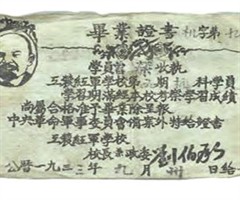 畢業證書
字第
學員 收執
工農紅軍學校第 期 科學員
學習期滿經本校考察學習成績
尚屬合格准予畢業除呈報
中央革命軍事委員會備案外特給證書
工農紅軍學校
校長兼政委 劉伯承
公曆一九三三年九月 日給